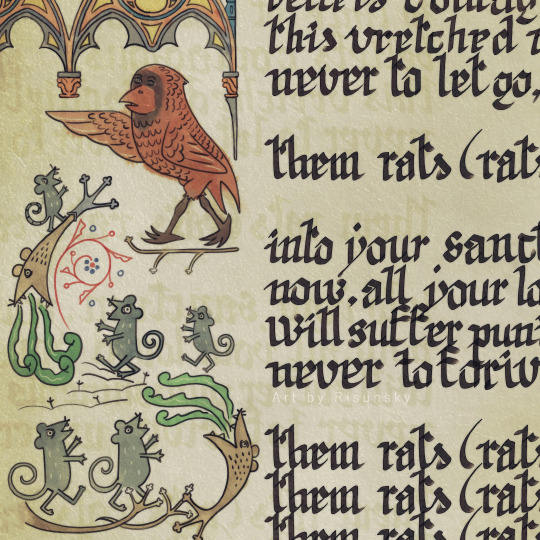 this wretched
never to let go,
them rats (rats
into your sanct
now. all your lo
will suffer puni
never to foriv
Art by Risunsky
them rats (rat
them rats (rats
them rats (rats